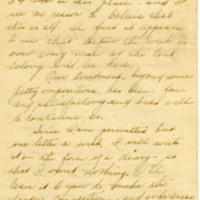 in this place. and I
see no reason to believe that
this is all. In fact it appears
to me that before the week is
over many more at the tent
colony will be here.
Our treatment, beyond some
petty impositions, has been fair
and satisfactory and bids well
to continue so.
Since I am permitted but
one letter a week, I will write
it in the form of a diary, so
that I omit nothing. I'll
leave it to you to make the